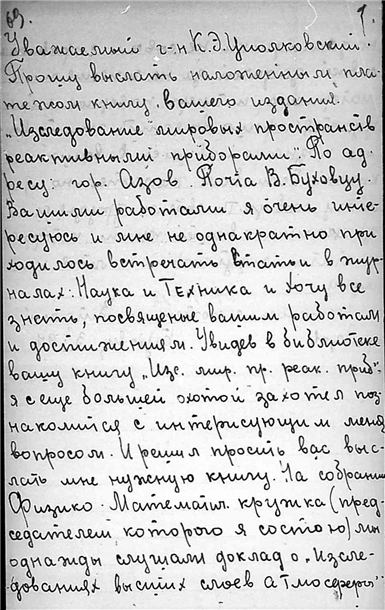 69. 1.
Уважаемый г-н К.Э. Циолковский!
Прошу выслать наложенным пла-
тежом книгу вашего издания
„Изследование мировых пространств
реактивными приборами". По ад-
ресу: гор. Азов Почта В. Буховцу.
Вашими работами я очень инте-
ресуюсь и мне не однакратно при
ходилось встречать статьи в жур-
налах: Наука и Техника и хочу все
знать, посвящение вашим работам
и достижениям. Увидев в библиотеке
вашу книгу „Изс. мир. пр. реак. приб."
я с еще большей охотой захотел поз-
накомится с интерисующим меня
вопросом. И решил просить вас выс-
лать мне нужную книгу. На собрании
Физико-Математич. кружка (пред-
седателем которого я состою) мы
однажды слушали доклад о „Изсле-
дованиях высших слоев атмосферы"